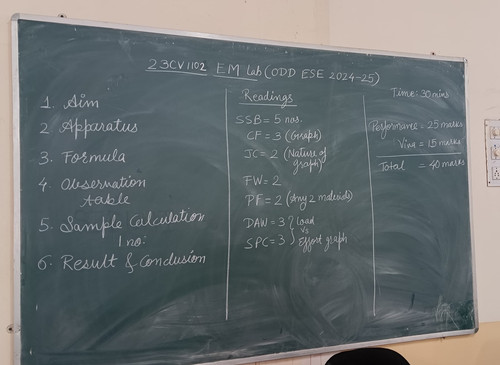 23CV1102 EM Lab (ODD ESE 2024-25)
1. Aim
2 Apparatus
3. Formula
4. Observation
table
5. Sample Calculation
1 no:
6. Result & Conclusion
Readings
SSB = 5 nos.
CF = 3 (Graph)
JC = 2 (Nature of
graph)
FW = 2
PF = 2 (Any 2 materials)
DAW = 3 } Load
Vs
SPC = 3 } Effort graph
Time: 30 mins
Performance = 25 marks
Viva = 15 marks
Total = 40 marks